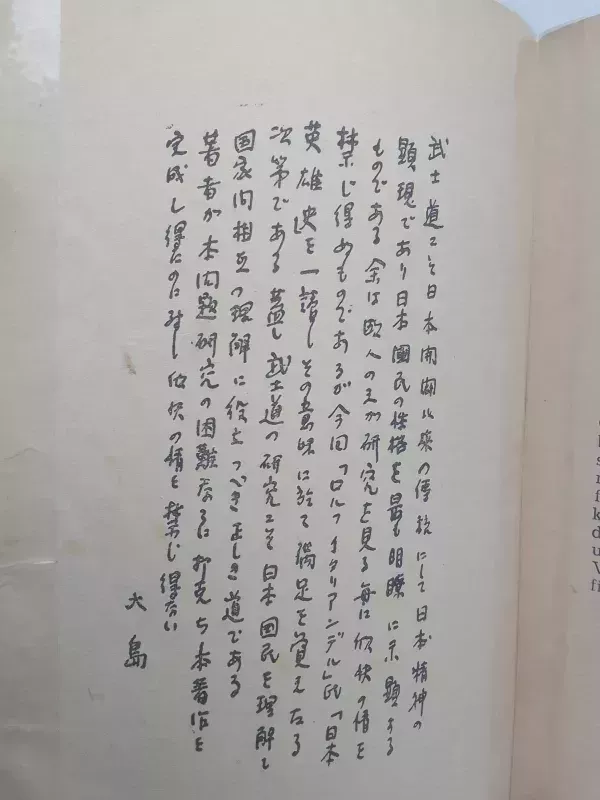 武士道こそ日本開闢以来の傳統にして日本精神の
顕現であり日本國民の性格を最も明瞭に示顕する
ものである 余は欧人の之が研究を見る毎に欣快の情を
禁じ得ぬものであるが今回「ロルフ イタリアンデル」氏「日本
英雄史」を一讀しその意味に於て満足を覚えたる
次第である 蓋し武士道の研究こそ日本國民を理解し
国家間相互の理解に役立つべき正しき道である
著者が本問題研究の困難なるに打克ち本著作を
完成し得たのに対し欣快の情を禁じ得ない
大島